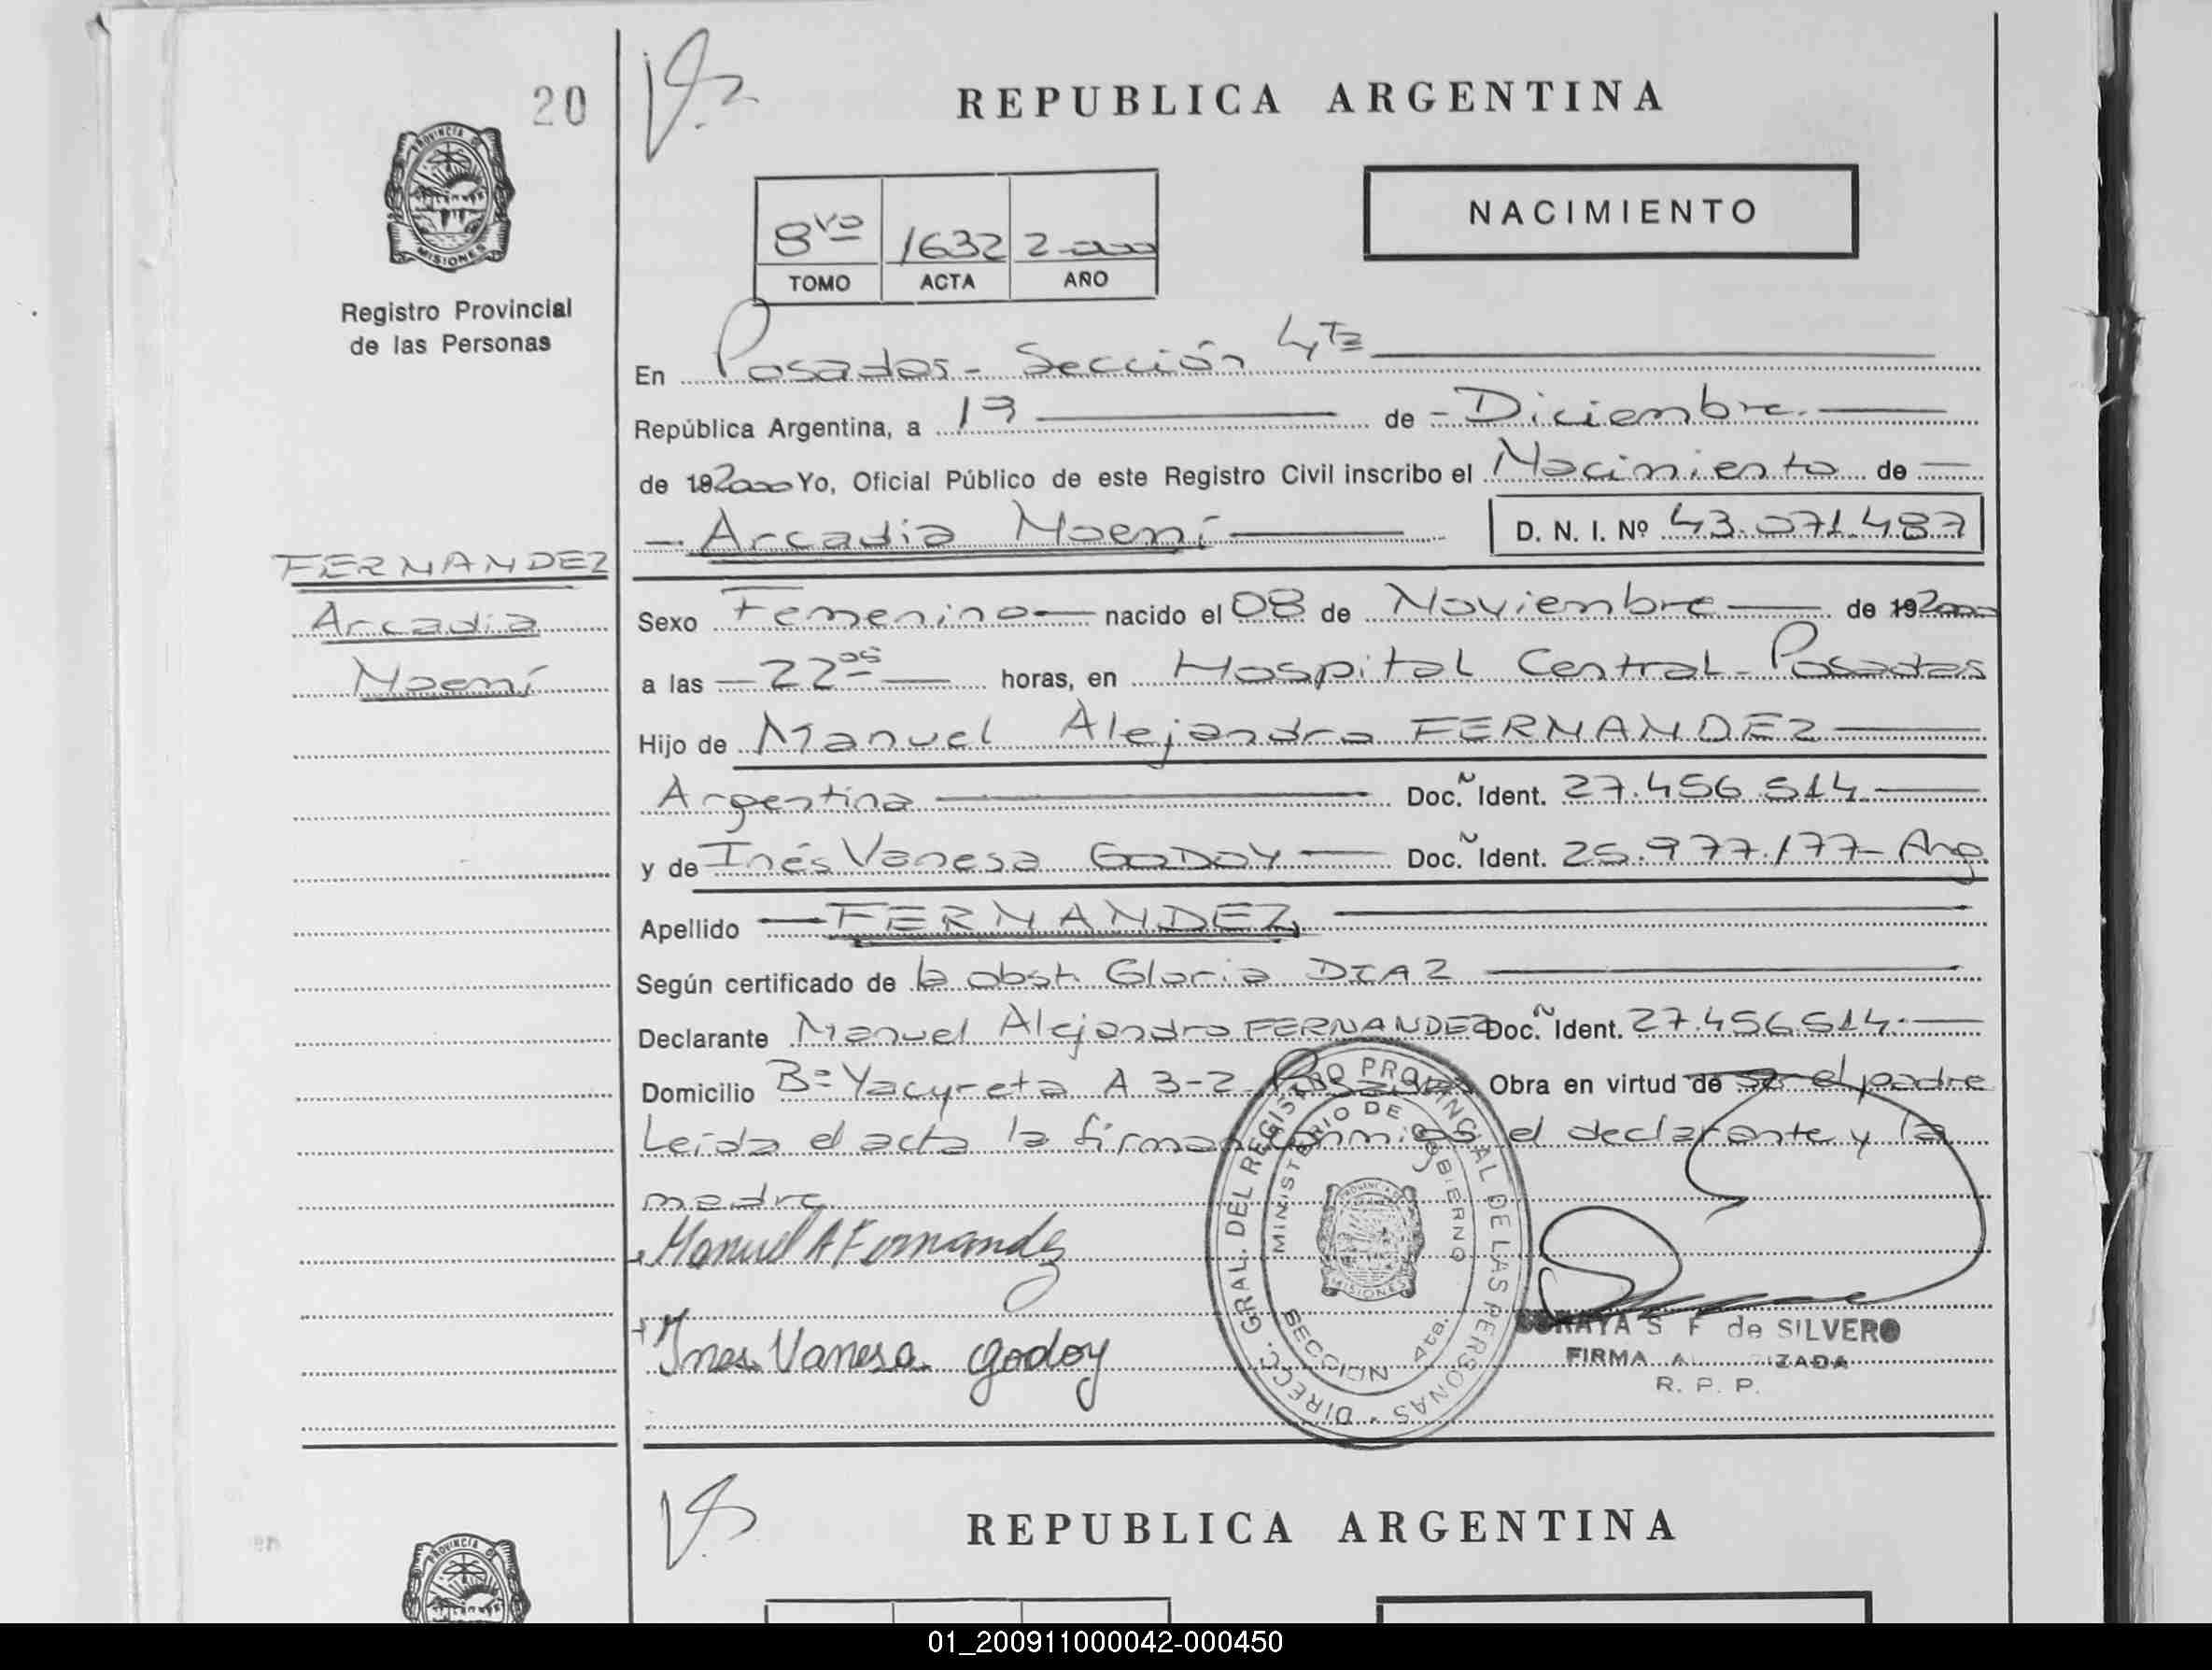 20
REPUBLICA ARGENTINA
PROVINCIA DE
MISIONES
Registro Provincial
de las Personas
NACIMIENTO
8vo 1632 2000
TOMO ACTA AÑO
En Posadas - Sección 4ta
República Argentina, a 13 de - Diciembre.
de 192000 Yo, Oficial Público de este Registro Civil inscribo el Nacimiento de
- Arcadia Noemí D. N. I. Nº 43.071.487
FERNANDEZ
Arcadia
Noemí
Sexo Femenino nacido el 08 de Noviembre de 192000
a las 22 05 horas, en Hospital Central - Posadas
Hijo de Manuel Alejandro FERNANDEZ
Argentina Doc. Ñ Ident. 27.456.514
y de Inés Vanesa GODOY Doc. Ñ Ident. 25.977.177 - Arg.
Apellido FERNANDEZ
Según certificado de la obst. Gloria DIAZ
Declarante Manuel Alejandro FERNANDEZ Doc. Ñ Ident. 27.456.514.
Domicilio Bº Yacyreta A 3-2 Posadas Obra en virtud de ser el padre
Leída el acta la firman conmigo el declarante y la
madre
Manuel A Fernandez
Ines Vanesa godoy
DIRECC. GRAL. DEL REGISTRO PROVINCIAL DE LAS PERSONAS
MINISTERIO DE GOBIERNO
SECCION 4ta.
PROVINCIA DE
MISIONES
SORAYA S F de SILVERO
FIRMA AUTORIZADA
R. P. P.
REPUBLICA ARGENTINA
PROVINCIA DE
01_200911000042-000450